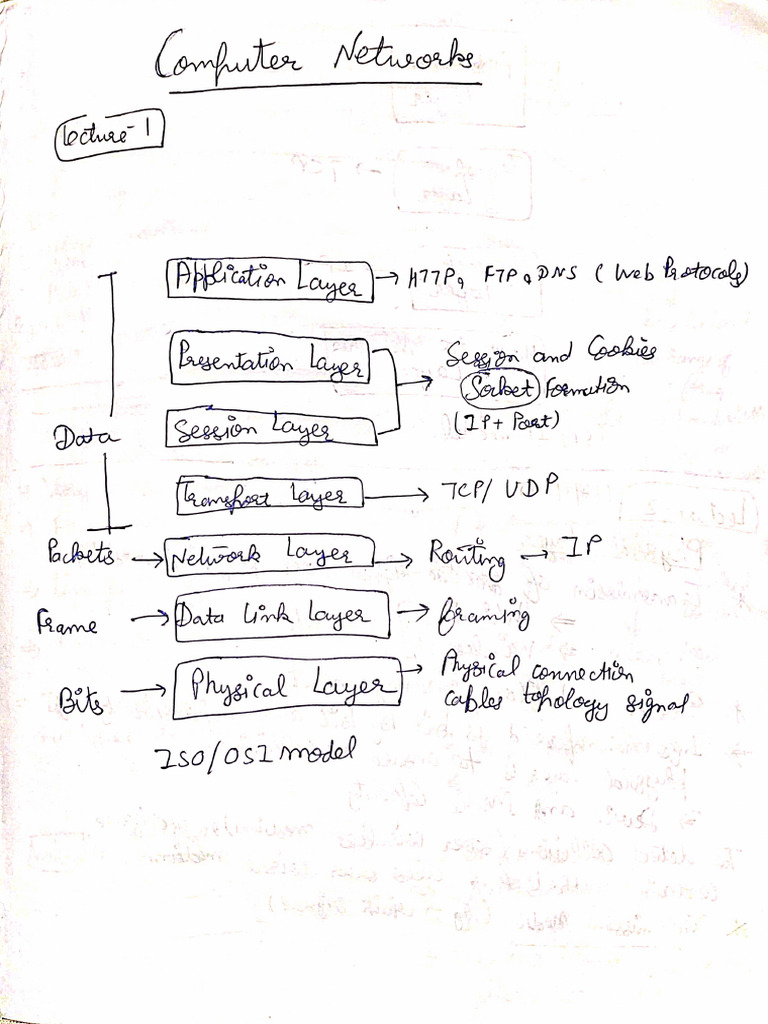 Computer Networks
Lecture-1
Application Layer → HTTP, FTP, DNS (Web Protocols)
Presentation Layer
Session and Cookies
Socket Formation
(IP + Port)
Session Layer
Data
Transport Layer → TCP/ UDP
Packets → Network Layer → Routing → IP
Frame → Data Link Layer → framing
Bits → Physical Layer → Physical connection
cables topology signal
ISO/OSI model